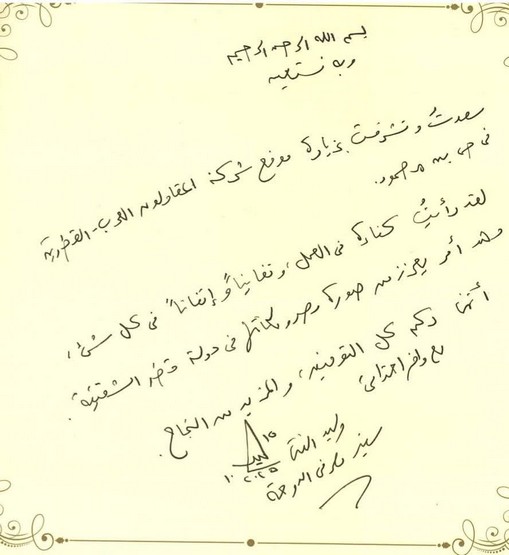 بسم الله الرحمن الرحيم
وبه نستعين
سعدتُ وتشرفت بزيارة موقع شركة المقاولون العرب - القطرية
في حي بن محمود.
لقد رأيتُ كفاءة في العمل، وتفانياً وإتقاناً في كل شئ،
وهذا أمر يعزز من صورة مصر ومكانتها في دولة قطر الشقيقة.
أتمنى لكم كل التوفيق، والمزيد من النجاح.
مع وافر احترامي
وليد الفقي
سفير مصر في الدوحة